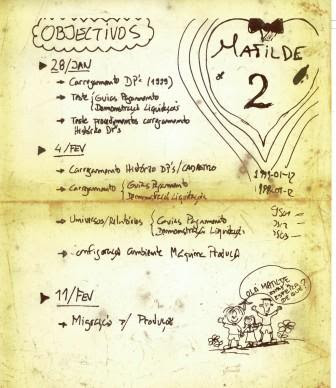 OBJECTIVOS
28/JAN
→ Carregamento DP's (1999)
→ Teste { Guias Pagamento
Demonstração Liquidação
→ Teste procedimentos carregamento
Histórico DP's
4/FEV
→ Carregamento Histórico DP's/CADASTRO
→ Carregamento { Guias Pagamento
Demonstração Liquidação
→ Universos/Relatórios { Guias Pagamento
Demonstração Liquidação
→ Configuração ambiente Máquina Produção
11/FEV
→ Migração p/ Produção
MATILDE
2
1999-01-12
OLÁ MATILDE